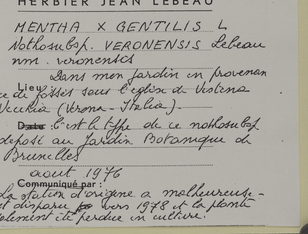 HERBIER JEAN LEBEAU
MENTHA X GENTILIS L
Nothosubsp. VERONENSIS Lebeau
nm. veronensis
Dans mon jardin en provenan
Lieu
ce de fossés sous l'église de Vestena
Vecchia (Verona - Italia).
Date: C'est le type de ce nothosubsp
déposé au Jardin Botanique de
Bruxelles
août 1976
Communiqué par :
La station d'origine a malheureuse-
t disparu vers 1978 et la plante
également été perdue en culture.